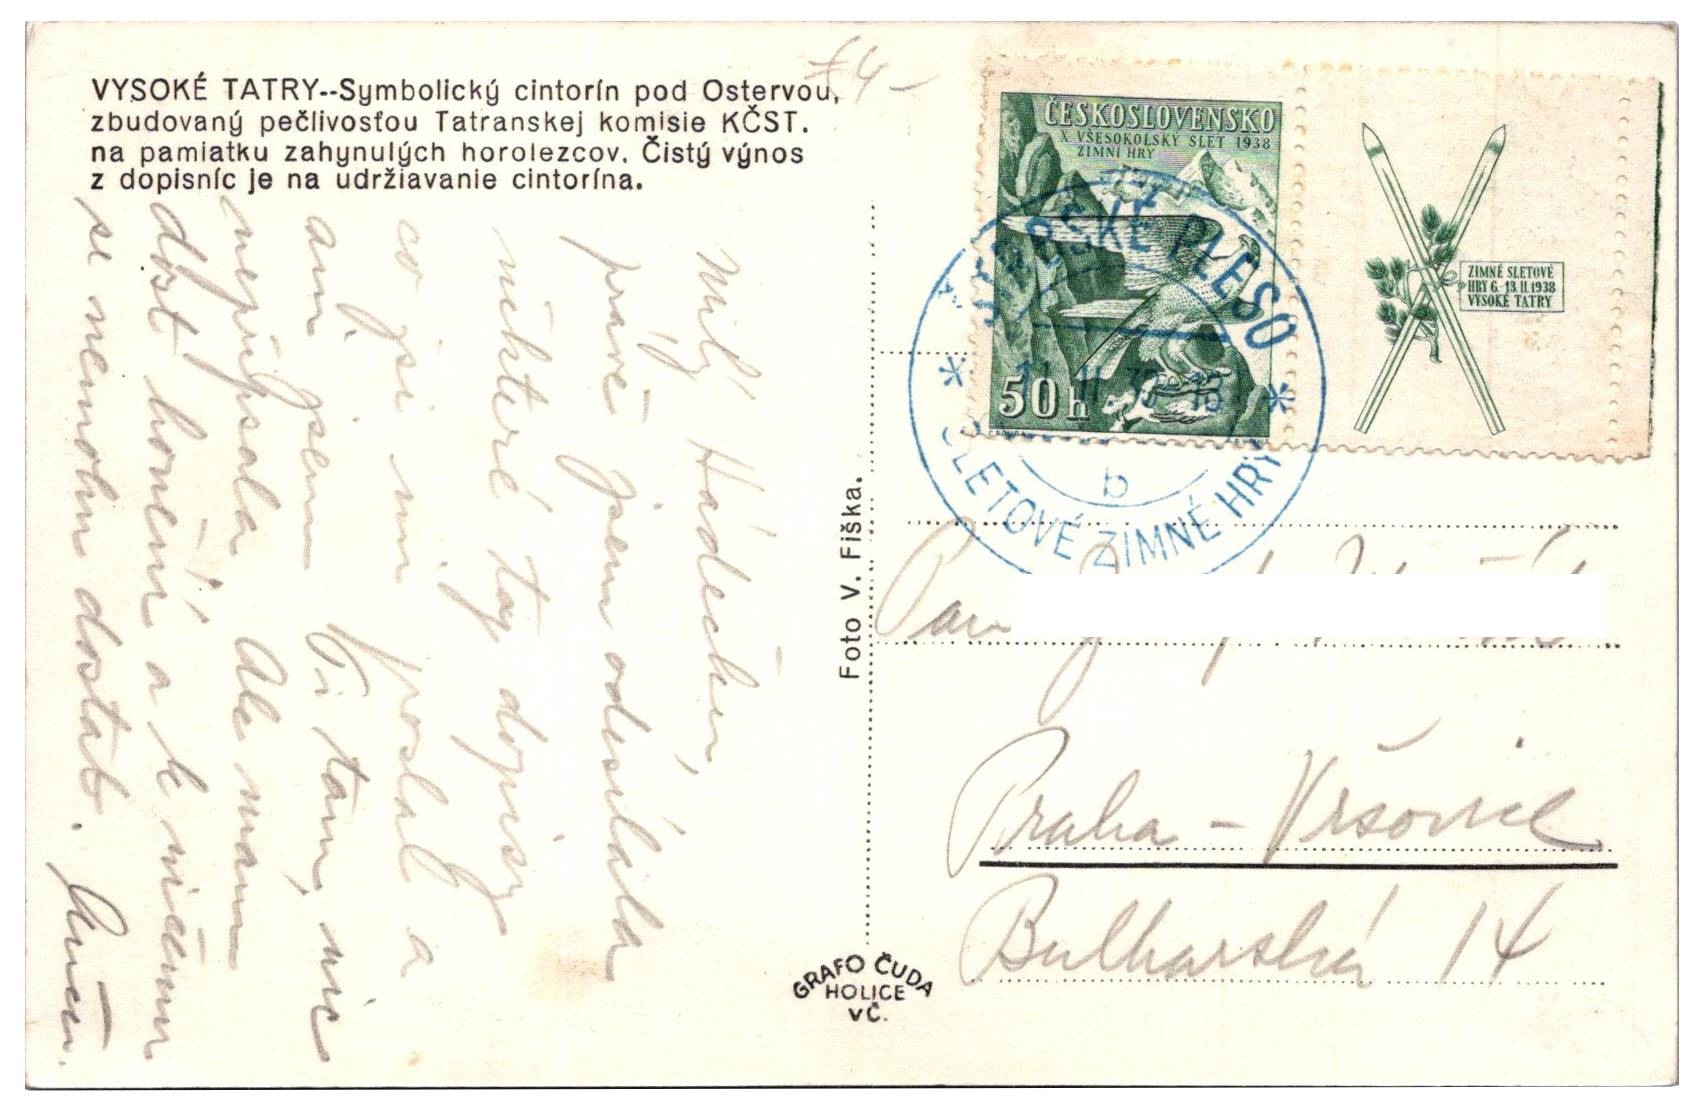 VYSOKÉ TATRY--Symbolický cintorín pod Ostervou,
zbudovaný pečlivosťou Tatranskej komisie KČST.
na pamiatku zahynulých horolezcov. Čistý výnos
z dopisníc je na udržiavanie cintorína.
ČESKOSLOVENSKO
X. VŠESOKOLSKÝ SLET 1938
ZIMNÍ HRY
50 h
ZIMNÉ SLETOVÉ
HRY 6. 13. II. 1938
VYSOKÉ TATRY
ŠTRBSKÉ PLESO
11. II. 38
b
SLETOVÉ ZIMNÉ HRY
Milý
právě jsem odesílala
některé ty dopisy
co jsi mi poslal a
ani jsem Ti tam nic
nepřipsala. Ale mám
dost honění a k ničemu
se nemohu dostat.
Foto V. Fiška.
Pan
Praha - Vršovice
Bulharská 14
GRAFO ČUDA
HOLICE
VČ.